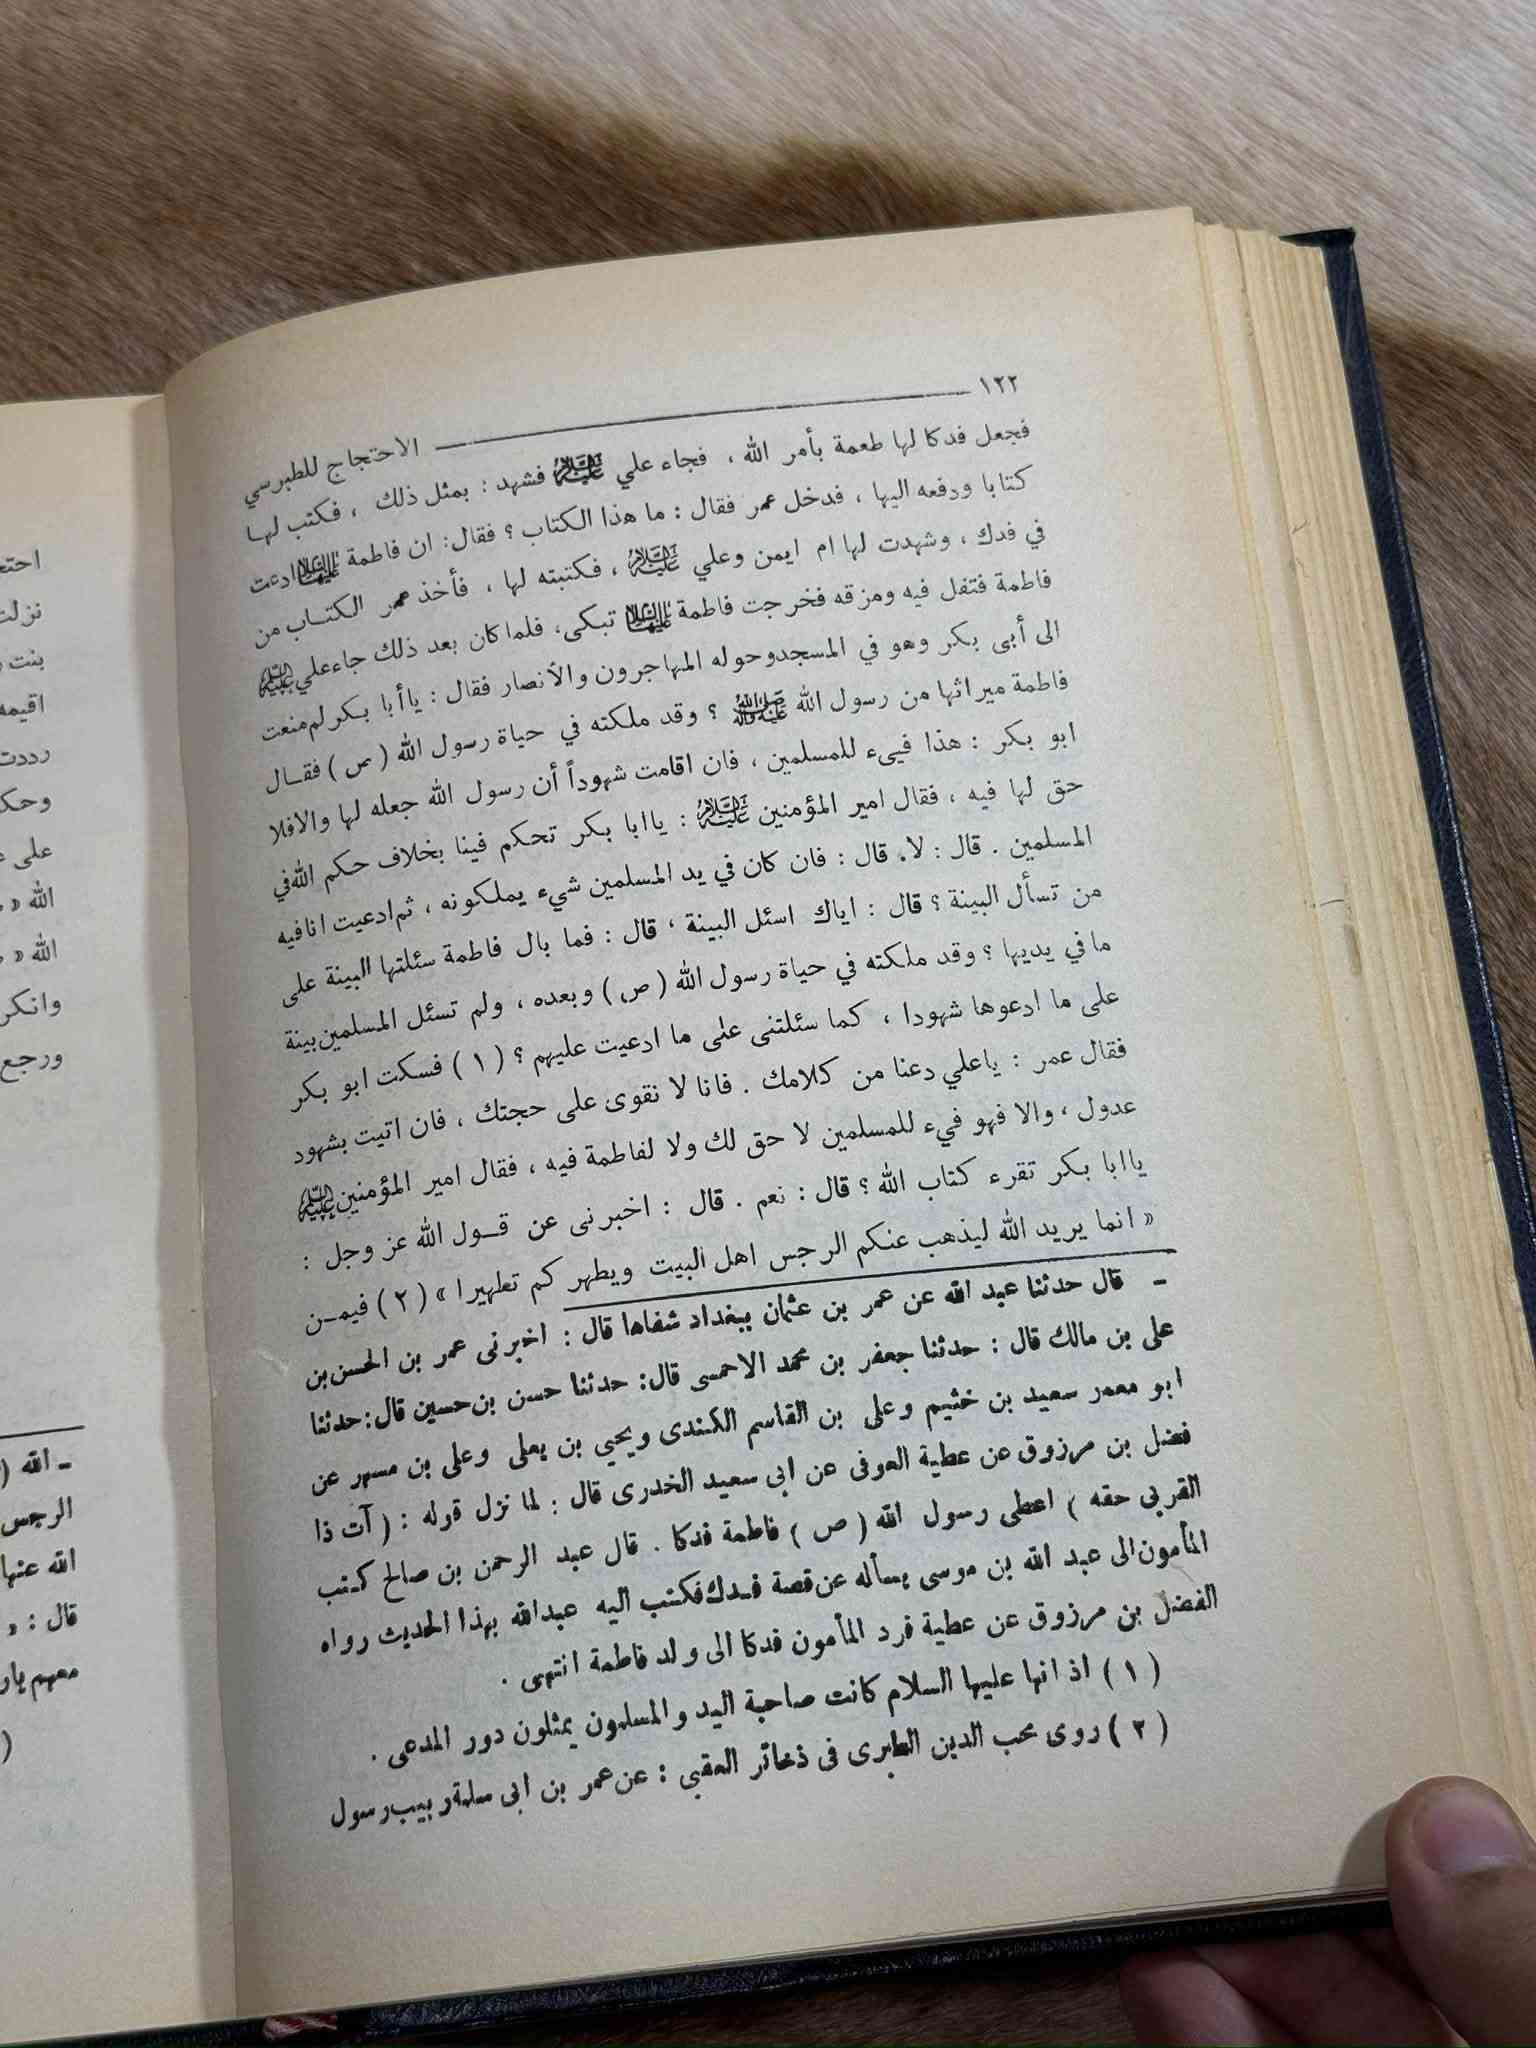 ١٢٢ الاحتجاج للطبرسي
فجعل فدكا لها طعمة بأمر الله ، فجاء علي عليه السلام فشهد : بمثل ذلك ، فكتب لها
كتابا ودفعه اليها ، فدخل عمر فقال : ما هذا الكتاب ؟ فقال : ان فاطمة عليها السلام ادعت
في فدك ، وشهدت لها ام ايمن وعلي عليه السلام ، فكتبته لها ، فأخذ عمر الكتاب من
فاطمة فتفل فيه ومزقه فخرجت فاطمة عليها السلام تبكى ، فلما كان بعد ذلك جاء علي عليه السلام
الى أبى بكر وهو في المسجد وحوله المهاجرون والأنصار فقال : يا أبا بكر لم منعت
فاطمة ميراثها من رسول الله صلى الله عليه وآله ؟ وقد ملكته في حياة رسول الله ( ص ) فقال
ابو بكر : هذا فييء للمسلمين ، فان اقامت شهوداً أن رسول الله جعله لها والا فلا
حق لها فيه ، فقال امير المؤمنين عليه السلام : يا ابا بكر تحكم فينا بخلاف حكم الله في
المسلمين . قال : لا . قال : فان كان في يد المسلمين شيء يملكونه ، ثم ادعيت انا فيه
من تسأل البينة ؟ قال : اياك اسئل البينة ، قال : فما بال فاطمة سئلتها البينة على
ما في يديها ؟ وقد ملكته في حياة رسول الله ( ص ) وبعده ، ولم تسئل المسلمين بينة
على ما ادعوها شهودا ، كما سئلتنى على ما ادعيت عليهم ؟ ( ١ ) فسكت ابو بكر
فقال عمر : يا علي دعنا من كلامك . فانا لا نقوى على حجتك ، فان اتيت بشهود
عدول ، والا فهو فيء للمسلمين لا حق لك ولا لفاطمة فيه ، فقال امير المؤمنين عليه السلام
يا ابا بكر تقرء كتاب الله ؟ قال : نعم . قال : اخبرنى عن قول الله عز وجل :
« انما يريد الله ليذهب عنكم الرجس اهل البيت ويطهركم تطهيرا » ( ٢ ) فيمن
ـ قال حدثنا عبد الله عن عمر بن عثمان ببغداد شفاها قال : اخبرنى عمر بن الحسن بن
على بن مالك قال : حدثنا جعفر بن محمد الاحمسى قال : حدثنا حسن بن حسين قال : حدثنا
ابو معمر سعيد بن خثيم وعلى بن القاسم الكندى ويحيي بن يعلى وعلى بن مسهر عن
فضل بن مرزوق عن عطية العوفى عن ابى سعيد الخدرى قال : لما نزل قوله : ( آت ذا
القربى حقه ) اعطى رسول الله ( ص ) فاطمة فدكا . قال عبد الرحمن بن صالح كتب
المأمون الى عبد الله بن موسى يسأله عن قصة فدك فكتب اليه عبد الله بهذا الحديث رواه
الفضل بن مرزوق عن عطية فرد المأمون فدكا الى ولد فاطمة انتهى .
( ١ ) اذ انها عليها السلام كانت صاحبة اليد والمسلمون يمثلون دور المدعى .
( ٢ ) روى محب الدين الطبرى فى ذخائر العقبى : عن عمر بن ابى سلمة ربيب رسول
نزلت
اقيمه
على
الله «
الله «
ورجع
ـ الله (
الرجس
الله عنها
قال : «